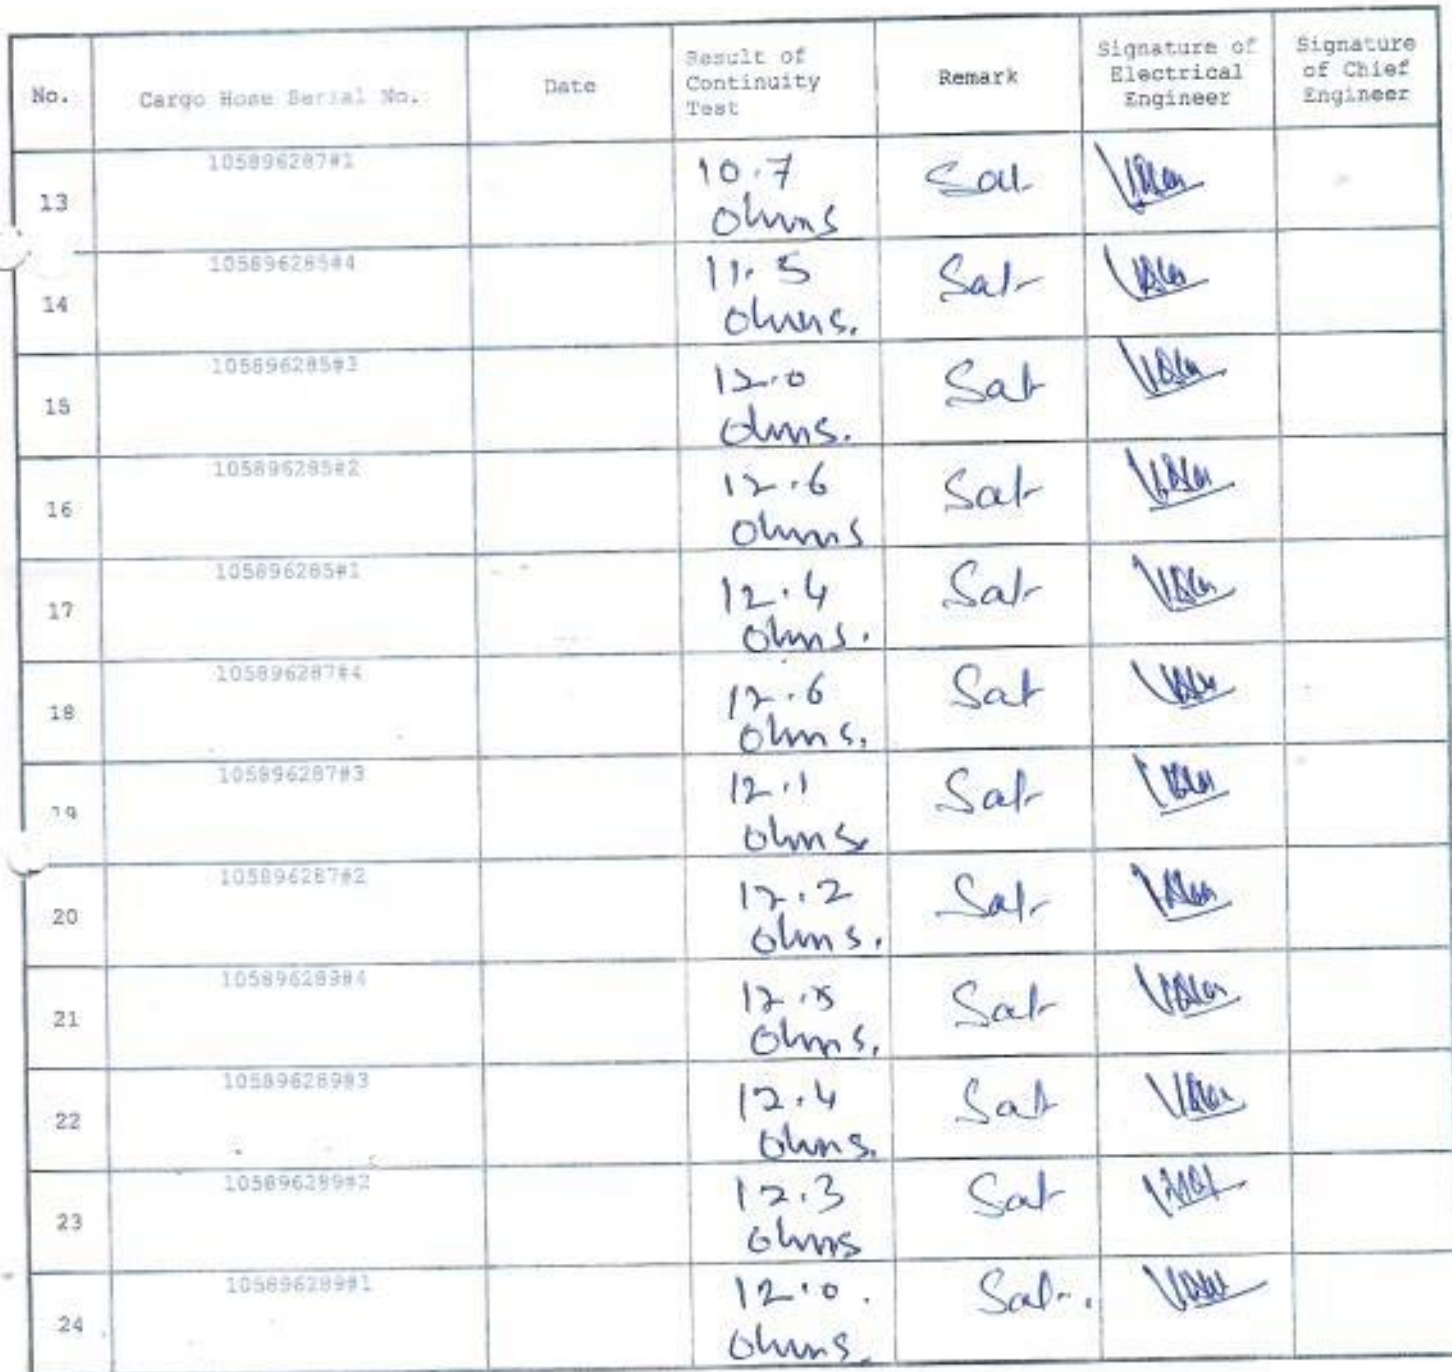 No.
Cargo Hose Serial No.
Date
Result of
Continuity
Test
Remark
Signature of
Electrical
Engineer
Signature
of Chief
Engineer
13
105896287#1
10.7
ohms
Sat
14
105896285#4
11.5
ohms.
Sat
15
105896285#3
12.0
ohms.
Sat
16
105896285#2
12.6
ohms
Sat
17
105896285#1
12.4
ohms.
Sat
18
105896287#4
12.6
ohms.
Sat
19
105896287#3
12.1
ohms.
Sat
20
105896287#2
12.2
ohms.
Sat
21
105896289#4
ohms.
Sat
22
105896289#3
12.4
ohms.
Sat
23
105896289#2
12.3
ohms
Sat
24
105896289#1
12.0.
ohms.
Sat.